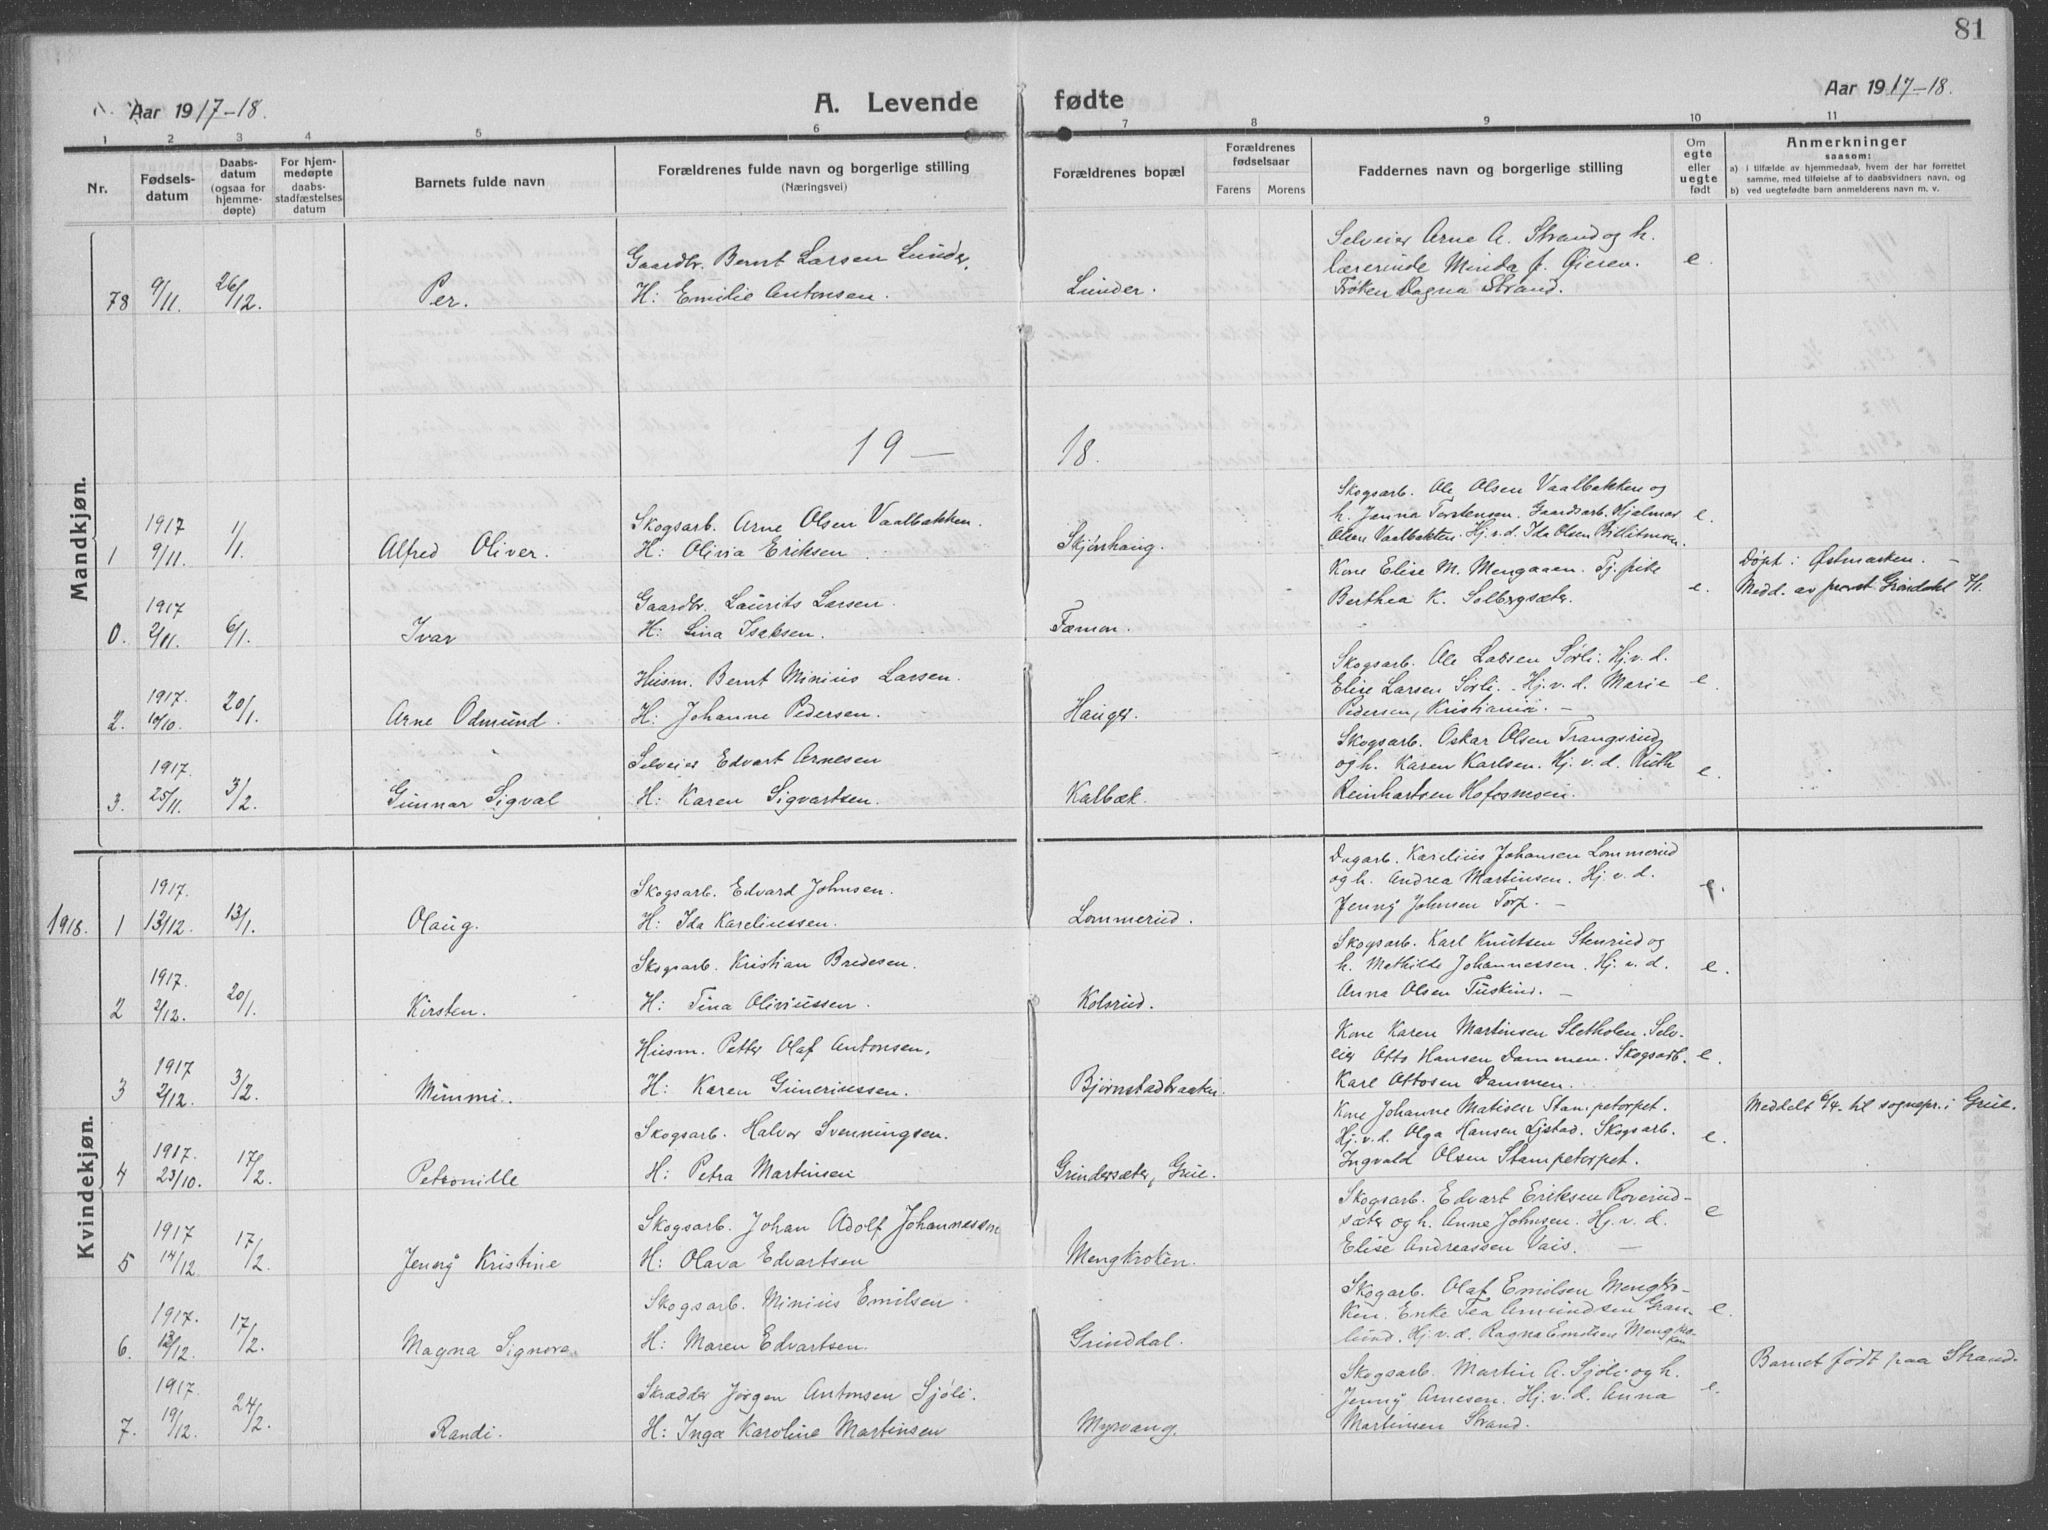 81
Aar 1917-18.
A. Levende fødte
Aar 1917-18.
1 2 3 4 5 6 7 8 9 10 11
Nr.
Fødsels-
datum
Daabs-
datum
(ogsaa for
hjemme-
døpte)
For hjem-
medøpte
daabs-
stadfæstelses
datum
Barnets fulde navn
Forældrenes fulde navn og borgerlige stilling
(Næringsvei)
Forældrenes bopæl
Forældrenes
fødselsaar
Farens
Morens
Faddernes navn og borgerlige stilling
Om
egte
eller
uegte
født
Anmerkninger
saasom:
a) i tilfælde av hjemmedaab, hvem der har forrettet
samme, med tilføielse af to daabsvidners navn, og
b) ved uegtefødte barn anmelderens navn m. v.
Mandkjøn.
78 9/11. 26/12. Per.
Gaardbr. Bernt Larsen Lunder.
H: Emilie Antonsen.
Lunder.
Selveier Arne A. Strand og h.
lærerinde Minda f. Øieren.
Frøken Dagna Strand.
e.
19 — 18.
1917
1 9/11. 1/1. Alfred Oliver.
Skogsarb. Arne Olsen Vaalbakken.
H: Olivia Eriksen
Skjønhaug.
Skogsarb. Ole Olsen Vaalbakken og
h. Janna Torstensen. Gaardsarb. Hjelmar
Olsen Vaalbakken. Hj. v. d. Ida Olsen
e.
1917
0. 2/11. 6/1. Ivar
Gaardbr. Laurits Larsen.
H: Lina Isaksen.
Fæmon.
Kone Elise M. Mengaaen. Tj. pike
Berthea K. Solbergsæter.
e.
Døpt i Østmarken. —
Medd. av provst Grøndahl 7/1.
1917.
2. 10/10. 20/1. Arne Odmund.
Husm. Bernt Minius Larsen.
H: Johanne Pedersen.
Hauger.
Skogsarb. Ole Larsen Sørli. Hj. v. d.
Elise Larsen Sørli. Hj. v. d. Marie
Pedersen, Kristiania. —
e.
1917.
3. 25/11. 3/2. Gunnar Sigval
Selveier Edvart Arnesen
H: Karen Sigvartsen.
Kalbæk.
Skogsarb. Oskar Olsen Trangsrud
og h. Karen Karlsen. Hj. v. d. Ruth
Reinhartsen Hofosmoen.
e.
Kvindekjøn.
1918.
1917.
1 13/12. 13/1. Olaug.
Skogsarb. Edvard Johnsen.
H: Ida Kareliussen.
Lommerud.
Dagarb. Karelius Johansen Lommerud
og h. Andrea Martinsen. Hj. v. d.
Jenny Johnsen Torp. —
e.
1917.
2 2/12. 20/1. Kirsten.
Skogsarb. Kristian Bredesen.
H: Tina Oliviussen.
Kolsrud.
Skogsarb. Karl Knutsen Stenrud og
h. Mathilde Johannessen. Hj. v. d.
Anna Olsen Tuskind. —
e.
1917
3 2/12. 3/2. Mimmi.
Husm. Petter Olaf Antonsen.
H: Karen Gunerius​sen.
Bjørnstadbraaten
Kone Karen Martinsen Sletholen. Selv-
eier Otto Hansen Dammen. Skogsarb.
Karl Ottosen Dammen.
e.
1917.
4 23/10. 17/2. Petronille
Skogsarb. Halvor Svenningsen.
H: Petra Martinsen
Grindersæter, Grue.
Kone Johanne Matisen Stampetorpet.
Hj. v. d. Olga Hansen Ljstad. Skogsarb.
Ingvald Olsen Stampetorpet.
e.
Meddelt 6/4. til sognepr. i Grue.
1917
5 14/12. 17/2. Jenny Kristine
Skogsarb. Johan Adolf Johannessen
H: Olava Edvartsen
Mengkroken.
Skogsarb. Edvart Eriksen Roverud-
sæter og h. Anne Johnsen. Hj. v. d.
Elise Andreassen Vais. —
e
1917.
6. 13/12. 17/2. Magna Signora.
Skogsarb. Minius Emilsen
H: Maren Edvartsen.
Grinddal.
Skogarb. Olaf Emilsen Mengkro-
ken. Enke Tea Amundsen Gran-
lund. Hj. v. d. Ragna Emilsen Mengkro-
ken
e.
1917.
7. 19/12. 24/2. Randi.
Skrædder Jørgen Antonsen Sjøli.
H: Inga Karoline Martinsen
Myrvang.
Skogsarb. Martin A. Sjøli og h.
Jenny Arnesen. Hj. v. d. Anna
Martinsen Strand.
e.
Barnet født paa Strand.